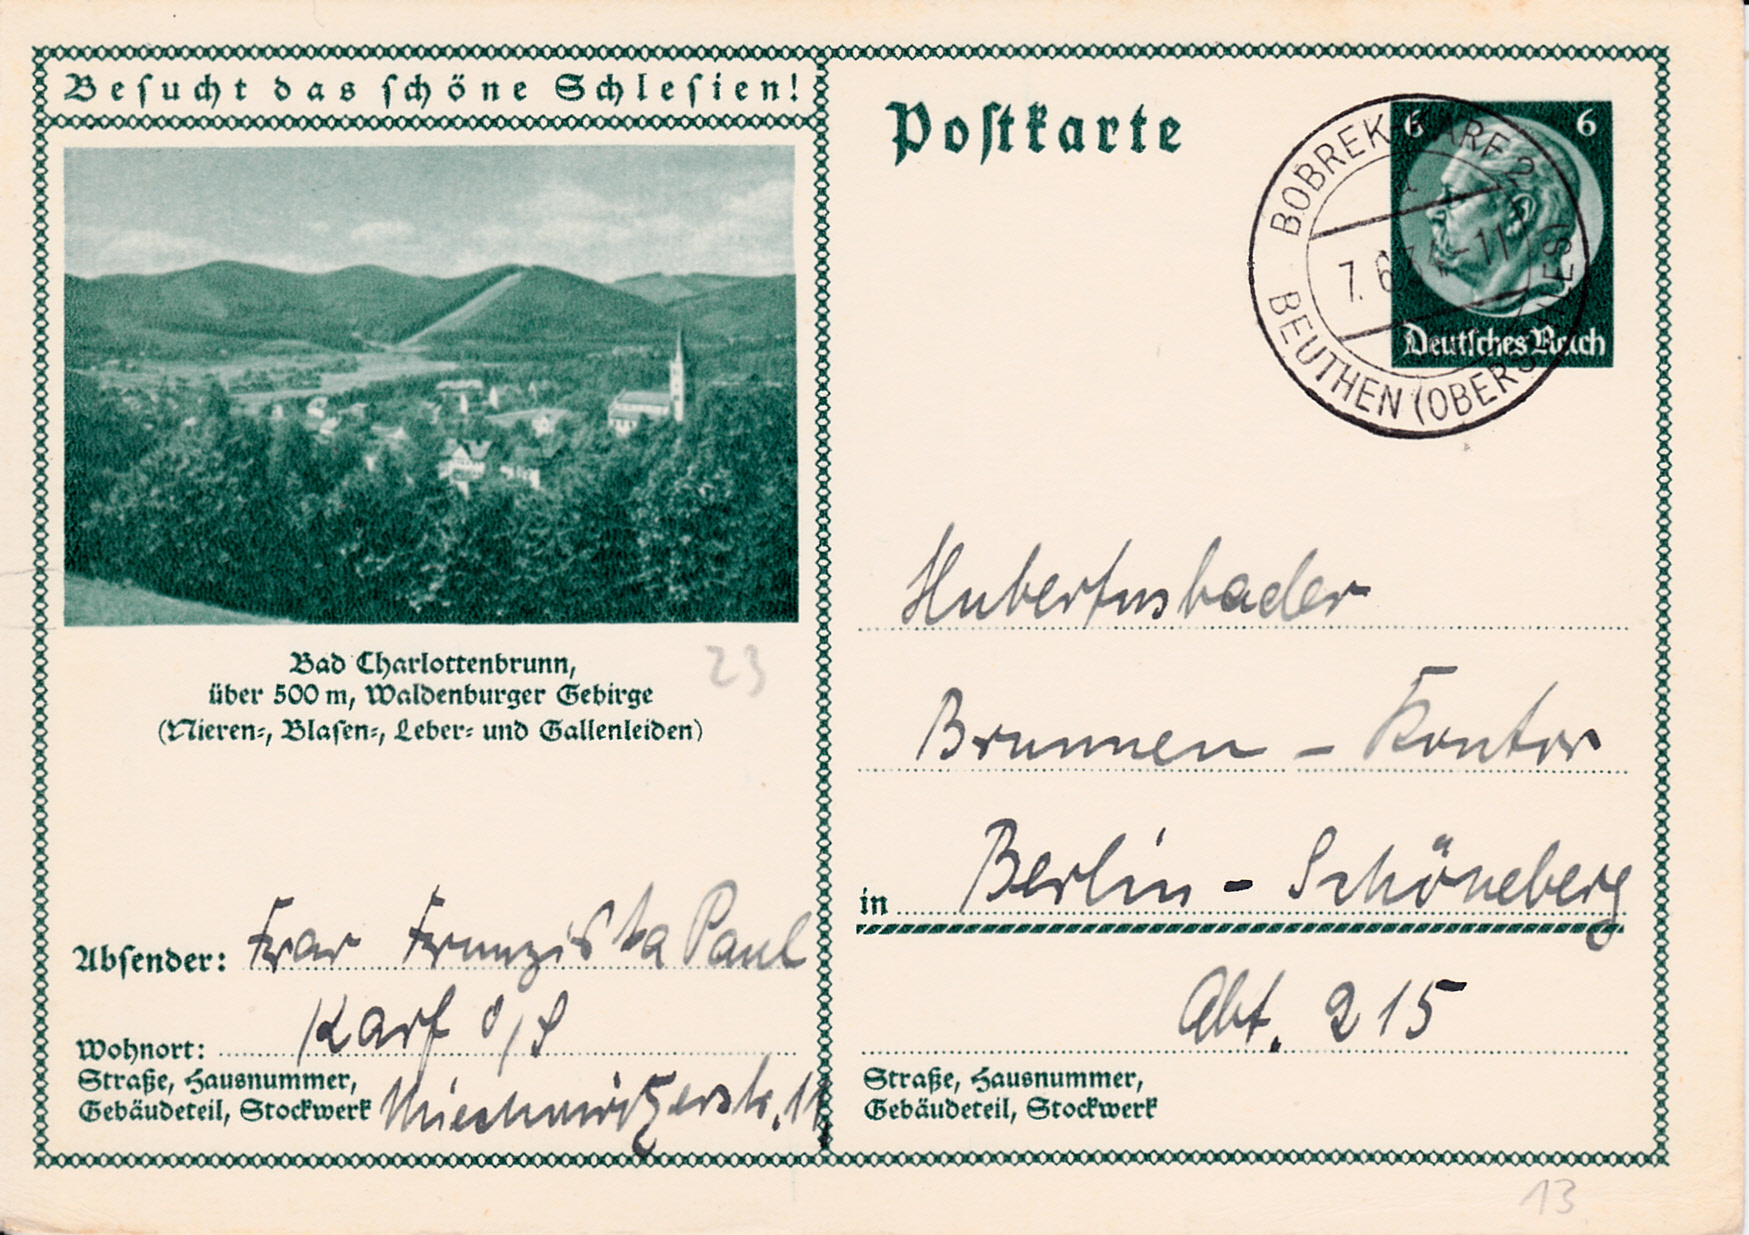 Besucht das schöne Schlesien!
Bad Charlottenbrunn,
über 500 m, Waldenburger Gebirge
(Nieren-, Blasen-, Leber- und Gallenleiden)
23
Absender: Frau Franziska Paul
Wohnort: Karf O/S
Straße, Hausnummer,
Gebäudeteil, Stockwerk Miechowitzerstr. 11
Postkarte
6 6
Deutsches Reich
BOBREK-KARF 2
7. 6. 34-11
BEUTHEN (OBERSCHLES)
Hubertusbader
Brunnen - Kontor
in Berlin - Schöneberg
Abt. 215
Straße, Hausnummer,
Gebäudeteil, Stockwerk
13